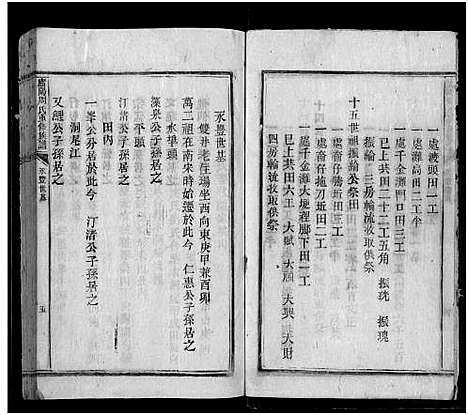 一處渡頭田一工
一處灘高田二工半
已上共田二十二工五角 振琥 振瑰
振輪 三房輪流收取供祭
十五世祖振輪公祭田
一處千金灘門口田三工
一處畲仔塝坵田二工
一處畲仔塊刃坵田二工
一處千金灘大地程脚下田一工
已上共田六工 大賦 大順 大興 大財
四房輪流收取供祭
永豐世基
雙井老在場坐西向東庚甲兼酉卯
萬二祖在南來時始遷於此今 仁惠公子孫居之
水華頭
深泉公子孫居之
汀清公子孫居之
田內
一峯公分居於此今 汀渚公子孫居之
洞尾江
又經公子孫居之
周氏重修族譜
永豐世基
五